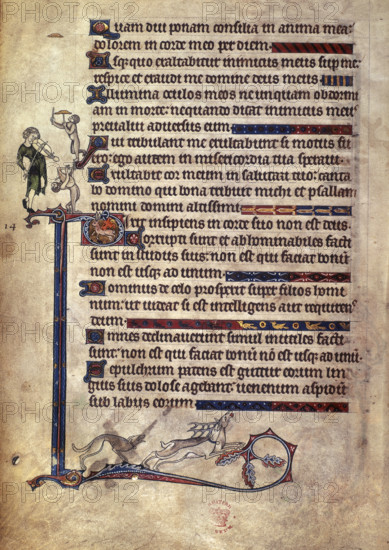 Quam diu ponam consilia in anima mea
dolorem in corde meo per diem
Usq; quo exaltabitur inimicus meus sup me
respice et exaudi me domine deus meus
Illumina oculos meos ne unquam obdormi
am in morte: nequando dicat inimicus meus
prevalui adversus eum
Qui tribulant me exultabunt si motus fu
ero: ego autem in misericordia tua speravi
Exultabit cor meum in salutari tuo: canta
bo domino qui bona tribuit michi et psallam
nomini domini altissimi
Dixit insipiens in corde suo non est deus
Corrupti sunt et abhominabiles facti
sunt in studiis suis: non est qui faciat bonū
non est usq; ad unum
Dominus de celo prospexit super filios homi
num: ut videat si est intelligens aut requirens
deum
Omnes declinaverunt simul inutiles facti
sunt: non est qui faciat bonū nō est usq; ad unū
Sepulchrum patens est guttur eorum lin
guis suis dolose agebant: venenum aspidū
sub labiis eorum
14
PHOTO12